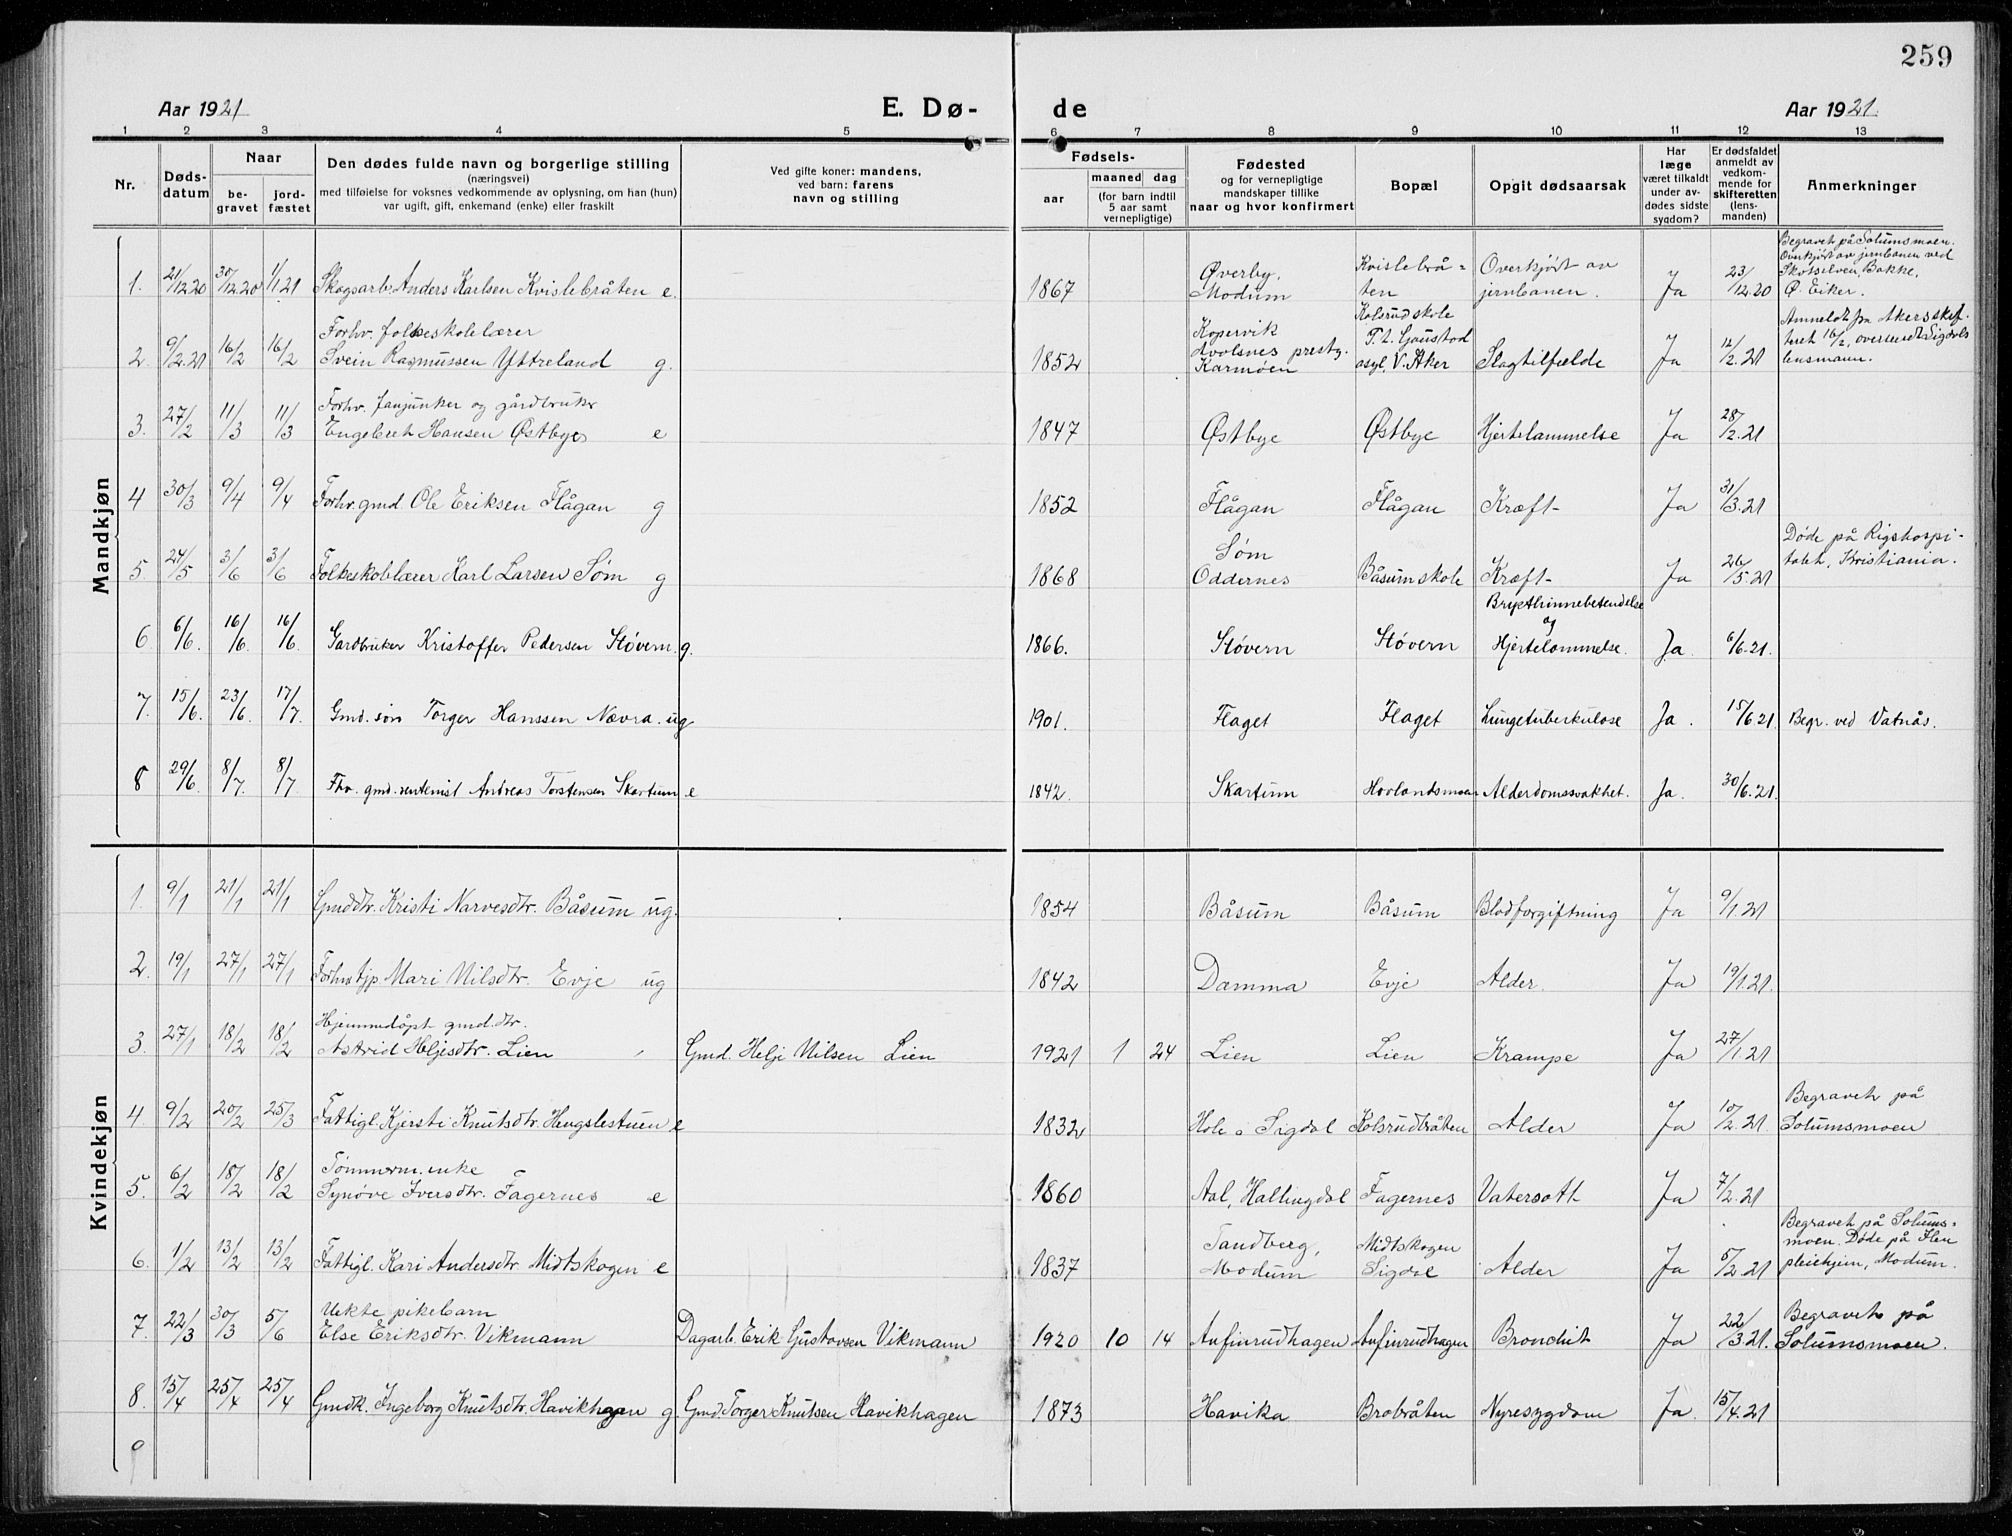 259
Aar 1921
E. Dø-
de
Aar 1921
1 2 3 4 5 6 7 8 9 10 11 12 13
Nr.
Døds-
datum
Naar
be-
gravet
jord-
fæstet
Den dødes fulde navn og borgerlige stilling
(næringsvei)
med tilføielse for voksnes vedkommende av oplysning, om han (hun)
var ugift, gift, enkemand (enke) eller fraskilt
Ved gifte koner: mandens,
ved barn: farens
navn og stilling
Fødsels-
aar
maaned dag
(for barn indtil
5 aar samt
vernepligtige)
Fødested
og for vernepligtige
mandskaper tillike
naar og hvor konfirmert
Bopæl
Opgit dødsaarsak
Har
læge
været tilkaldt
under av-
dødes sidste
sygdom?
Er dødsfaldet
anmeldt av
vedkom-
mende for
skifteretten
(lens-
manden)
Anmerkninger
Mandkjøn
1. 21/12.20 30/12.20 1/1.21 Skogsarb. Anders Karlsen Kvislebråten e. 1867 Øverby, Modum Kvislebrå=ten Overkjørt av jernbanen. Ja 23/12.20 Begravet på Solumsmoen. Overkjørt av jernbanen ved Skotselven, Bakke, Ø. Eiker.
2. 9/2.21 16/2 16/2 Forhv. folkeskolelærer
Svein Rasmussen Yttreland g. 1852 Kopervik Avolsnes prestg. Karmøen Kolsrud skole P.t. Gaustad asyl, V. Aker Slagtilfælde Ja 12/2.21 Anmeldt fra Akers skif-teret 16/2, oversendt Sigdals lensmann.
3. 27/2 11/3 11/3 Forhv. fanjunker og gårdbruker
Engebret Hansen Østbye e 1847 Østbye Østbye Hjertelammelse Ja 28/2.21
4 30/3 9/4 9/4 Forhv. gmd. Ole Eriksen Flågan g 1852 Flågan Flågan Kræft Ja 31/3.21
5. 24/5 3/6 3/6 Folkeskolelærer Karl Larsen Søm g 1868 Søm Oddernes Båsum skole Kræft Ja 26/5.21 Døde på Rigshospi-talet, Kristiania.
6 6/6. 16/6. 16/6. Gardbruker Kristoffer Pedersen Støvern. g. 1866. Støvern Støvern Brysthinnebetendelse og Hjertelammelse. Ja. 6/6.21.
7. 15/6. 23/6. 17/7. Gmd. søn Torger Hanssen Nævra. ug 1901. Flaget Flaget Lungetuberkulose Ja. 15/6 21. Begr. ved Vatnås.
8 29/6. 8/7. 8/7. Fhv. gmd. rentenist Andreas Torstensen Skartum e 1842. Skartum Hovlandsmoen Alderdomssvakhet. Ja. 30/6.21.
Kvindekjøn
1. 9/1 21/1 21/1 Gmddtr. Kristi Narvesdtr. Båsum ug. 1854 Båsum Båsum Blodforgiftning Ja 9/1.21
2. 19/1 27/1 27/1 Forhv. tjp. Mari Nilsdtr. Evje ug 1842 Damma Evje Alder. Ja 19/1.21.
3. 27/1 18/2 18/2 Hjemmedøpt gmd.dtr.
Astrid Heljesdtr. Lien Gmd. Helje Nilsen Lien 1921 1 24 Lien Lien Krampe Ja 27/1.21
4 9/2 20/2 25/3 Fattigl. Kjersti Knutsdtr. Hengslestuen e 1832 Hole i Sigdal Kolsrudbråten Alder Ja 10/2.21 Begravet på Solumsmoen
5. 6/2 18/2 18/2 Tømmerm. enke
Synøve Iversdtr. Fagernes e 1860 Aal, Hallingdal Fagernes Vatersott Ja 7/2.21
6. 1/2 13/2 13/2 Fattigl. Kari Andersdtr. Midtskogen e 1837 Sandberg, Modum Midtskogen Sigdal Alder Ja 5/2.21 Begravet på Solums=moen. Døde på pleiehjem, Modum.
7. 22/3 30/3 5/6 Uekte pikebarn
Else Eriksdtr. Vikmann Dagarb. Erik Gustavsen Vikmann 1920 10 14 Anfinrudhagen Anfinrudhagen Bronchit Ja 22/3.21. Begravet på Solumsmoen.
8. 15/4 25/4 25/4 Gmdk. Ingeborg Knutsdtr. Havikhagen g. Gmd. Torger Knutsen Havikhagen 1873 Havika Brobråten Nyresygdom Ja. 15/4.21
9